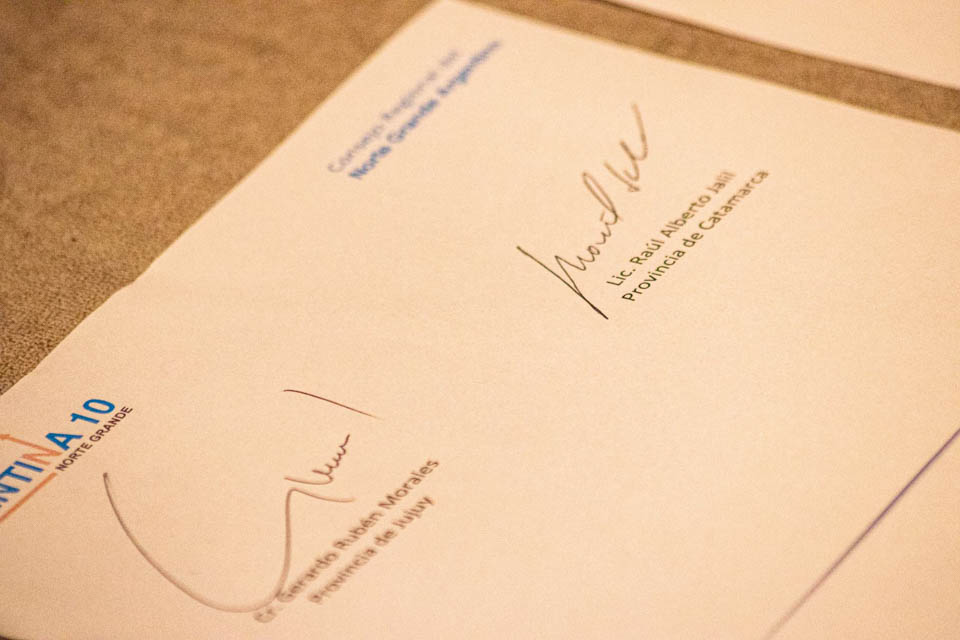 Consejo Regional del
Norte Grande Argentino
Lic. Raúl Alberto Jalil
Provincia de Catamarca
NTINA 10
NORTE GRANDE
Cr. Gerardo Rubén Morales
Provincia de Jujuy